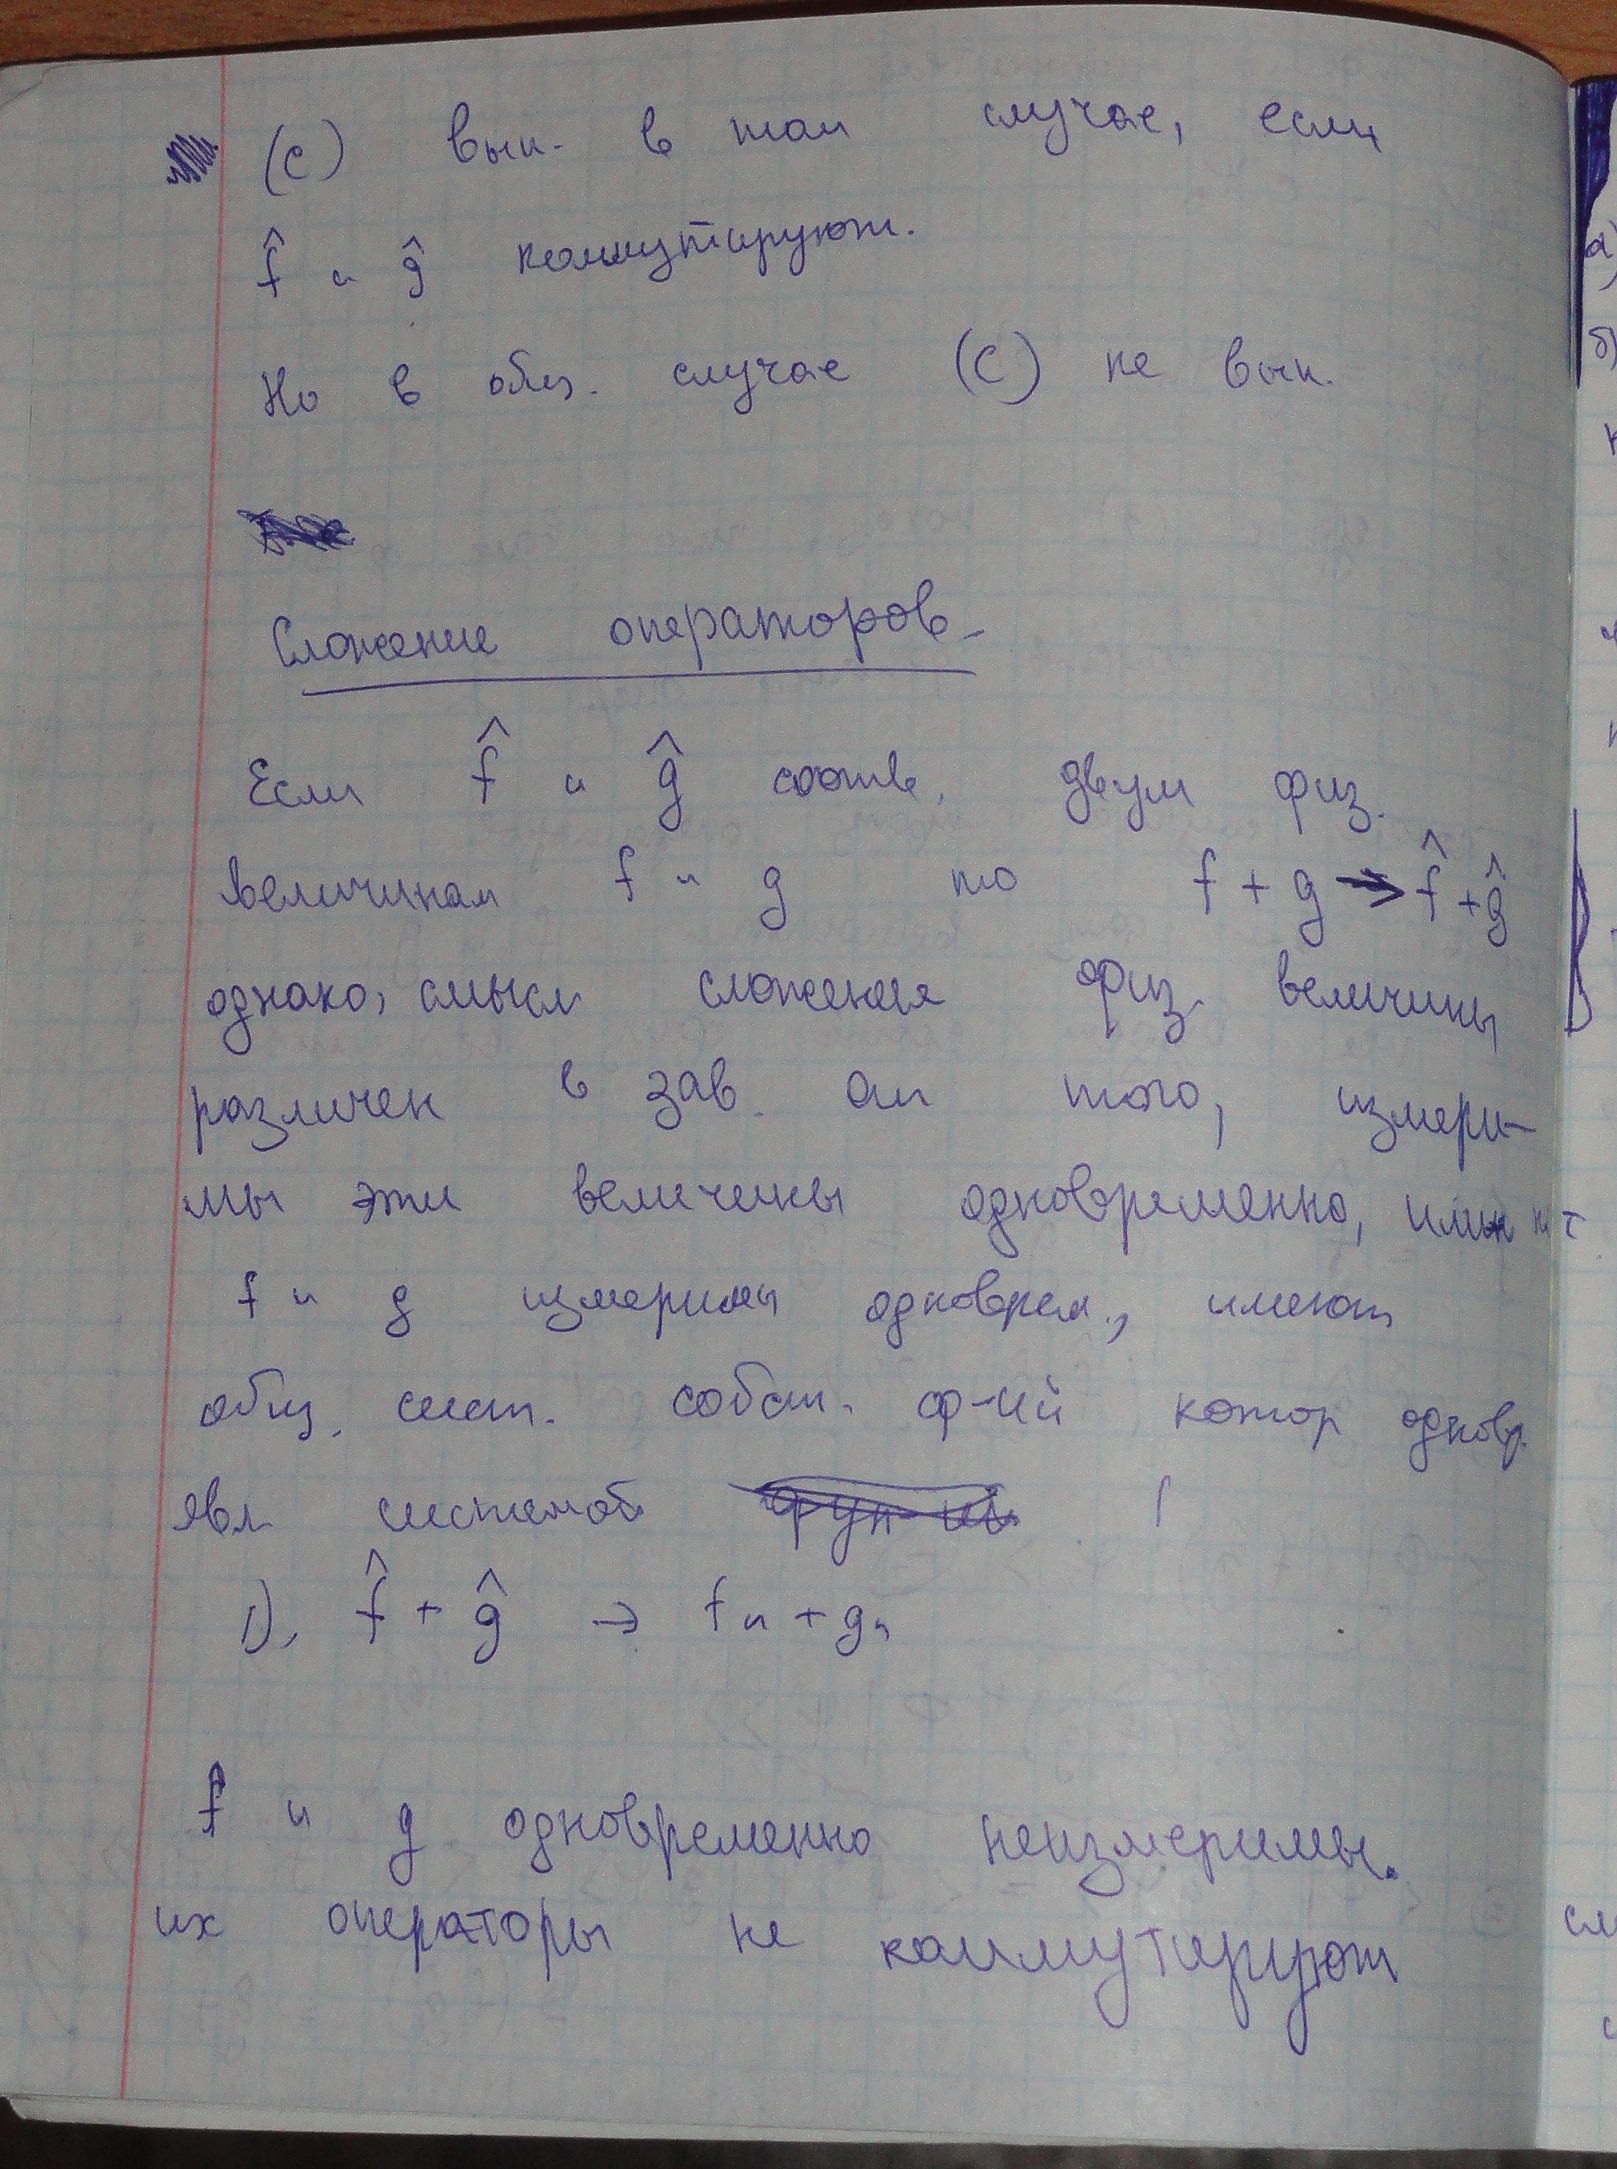 (С) вып. в том случае, если
f̂ и ĝ коммутируют.
Но в общ. случае (С) не вып.
Сложение операторов
Если f̂ и ĝ соотв. двум физ.
величинам f и g то f + g → f̂ + ĝ
однако, смысл сложения физ. величины
различен в зав. от того, измери-
мы эти величины одновременно, или нет
f и g измеримы одноврем., имеют
общ. сист. собст. ф-ий котор одновр.
явл системой
1). f̂ + ĝ → fn + gn
f и g одновременно неизмеримы.
их операторы не коммутируют